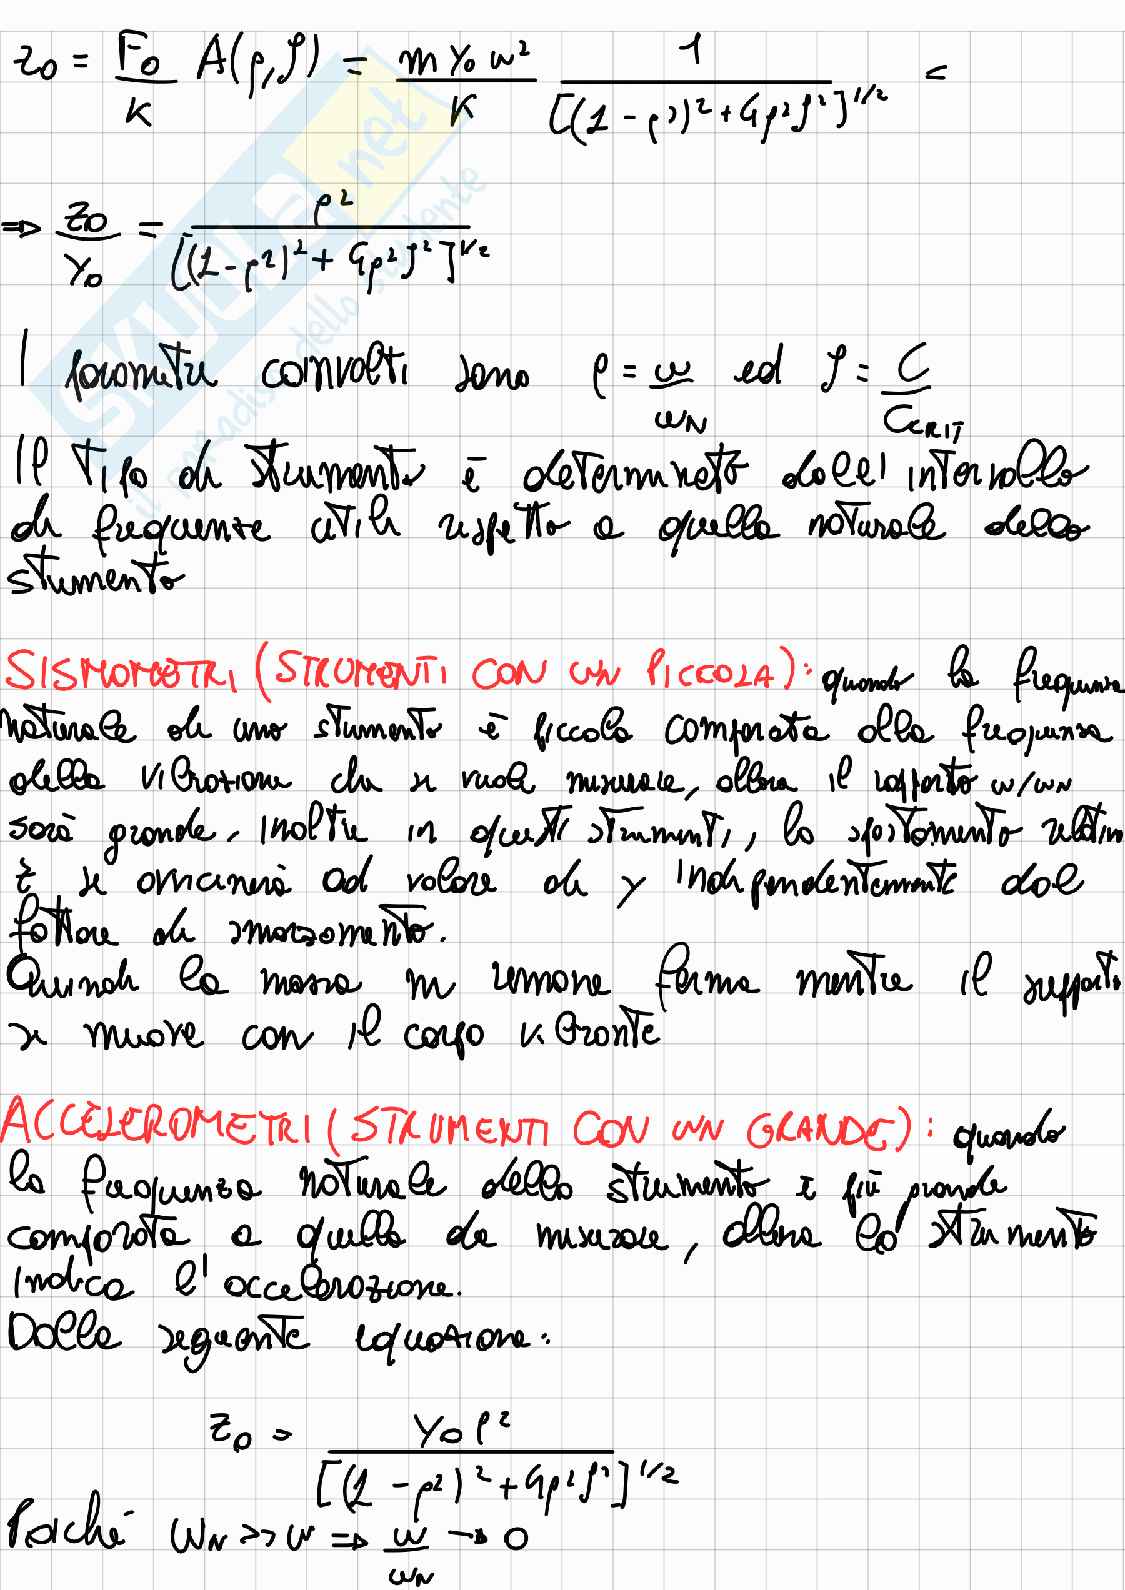 z₀ = F₀/K A(ρ,ζ) = m Y₀ ω²/K 1/[(1-ρ²)²+4ρ²ζ²]^1/2 =
⇒ z₀/Y₀ = ρ²/[(1-ρ²)²+4ρ²ζ²]^1/2
I parametri coinvolti sono ρ = ω/ωN ed ζ = C/CCRIT
Il tipo di strumento è determinato dall'intervallo
di frequenze utili rispetto a quella naturale dello
strumento
SISMOMETRI (STRUMENTI CON ωN PICCOLA): quando la frequenza
naturale di uno strumento è piccola comparata alla frequenza
della vibrazione che si vuole misurare, allora il rapporto ω/ωN
sarà grande. Inoltre in questi strumenti, lo spostamento relativo
z si avvicinerà ad valore di y indipendentemente dal
fattore di smorzamento.
Quindi la massa m rimane ferma mentre il supporto
si muove con il corpo vibrante
ACCELEROMETRI (STRUMENTI CON ωN GRANDE): quando
la frequenza naturale dello strumento è più grande
comparata a quella da misurare, allora lo strumento
indica l'accelerazione.
Dalla seguente equazione:
z₀ = Y₀ρ²/[(1-ρ²)²+4ρ²ζ²]^1/2
Poiché ωN >> ω ⇒ ω/ωN → 0
SKUOLA.net
il paradiso dello studente